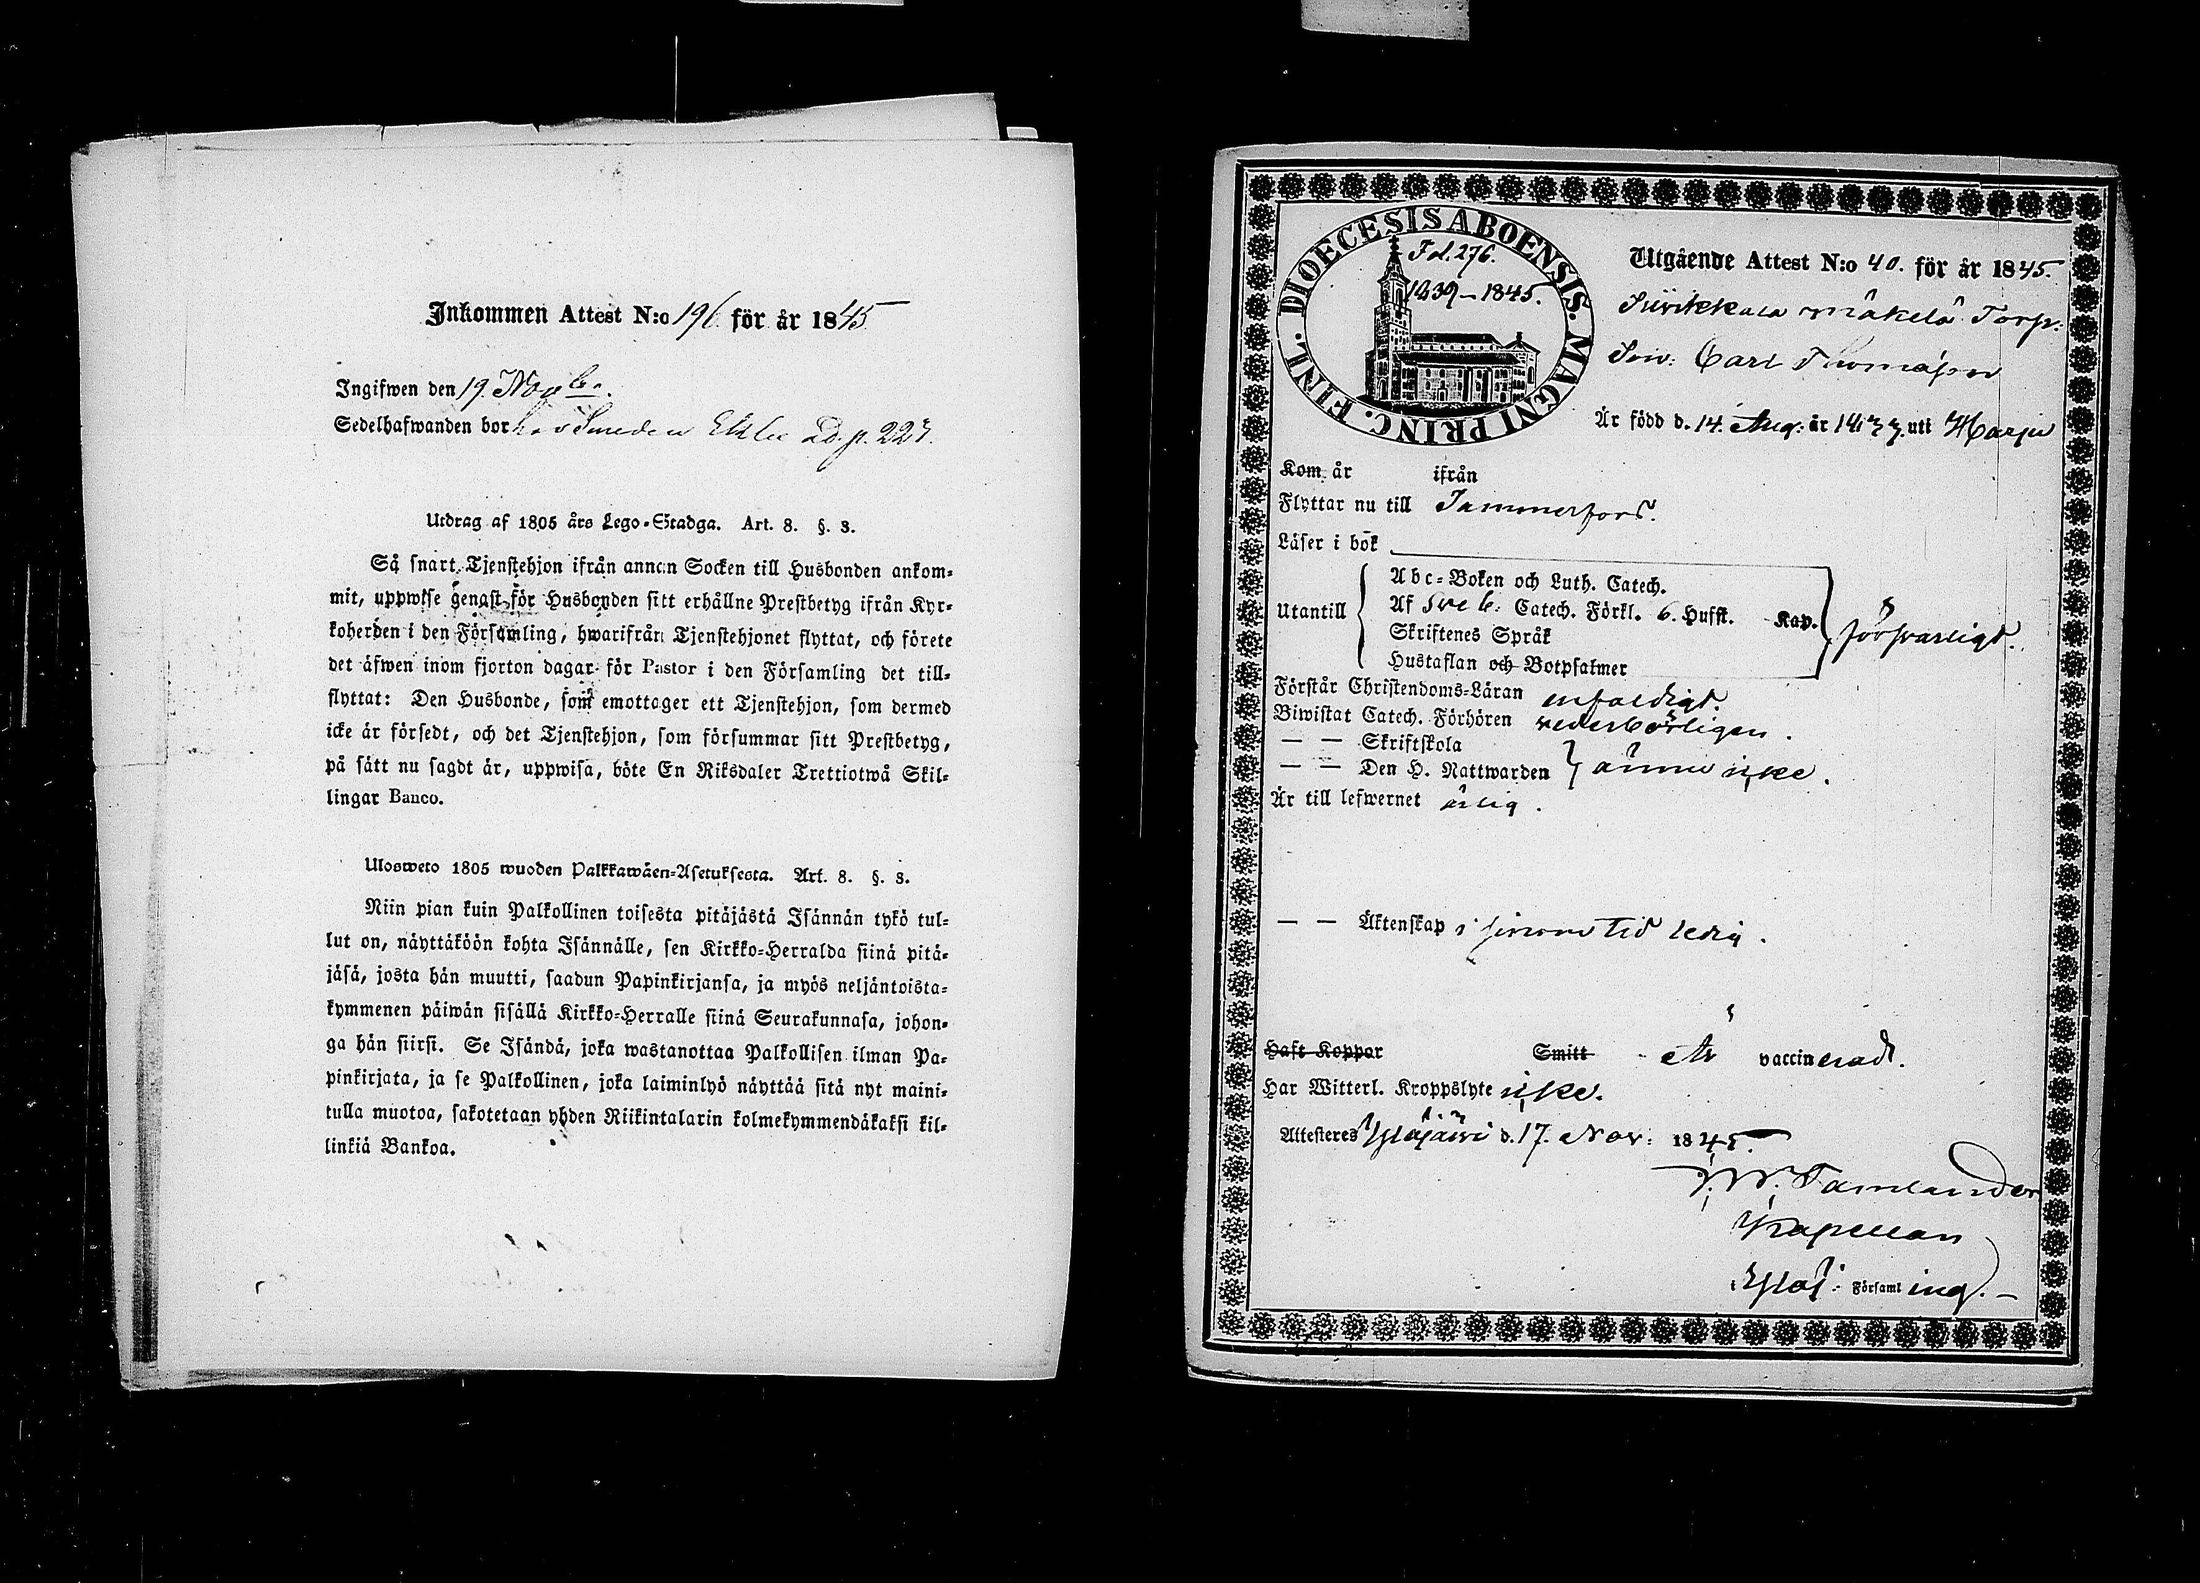 Inkommen Attest N:o 196 för år 1845
Ingifwen den 19. Novbr.
Sedelhafwanden bor hos Smeden p. 227.
Utdrag af 1805 års Lego-Stadga. Art. 8. §. 3.
Så snart Tjenstehjon ifrån annan Socken till Husbonden ankom-
mit, uppwise genast för Husbonden sitt erhållne Prestbetyg ifrån Kyr-
koherden i den Församling, hwarifrån Tjenstehjonet flyttat, och förete
det äfwen inom fjorton dagar för Pastor i den Församling det till-
flyttat: Den Husbonde, som emottager ett Tjenstehjon, som dermed
icke är försedt, och det Tjenstehjon, som försummar sitt Prestbetyg,
på sätt nu sagdt är, uppwisa, böte En Riksdaler Trettiotwå Skil-
lingar Banco.
Ulosweto 1805 wuoden Palkkawäen-Asetuksesta. Art. 8. §. 3.
Niin pian kuin Palkollinen toisesta pitäjästä Isännän tykö tul-
lut on, näyttäköön kohta Isännälle, sen Kirkko-Herralda siinä pitä-
jäsä, josta hän muutti, saadun Papinkirjansa, ja myös neljäntoista-
kymmenen päiwän sisällä Kirkko-Herralle siinä Seurakunnasa, johon-
ga hän siirsi. Se Isändä, joka wastanottaa Palkollisen ilman Pa-
pinkirjata, ja se Palkollinen, joka laiminlyö näyttää sitä nyt maini-
tulla muotoa, sakotetaan yhden Riikintalarin kolmekymmendäkaksi kil-
linkiä Bankoa.
DIOECESIS ABOENSIS. MAGNI PRINC. FINL.
Fol. 276.
1839-1845.
Utgående Attest N:o 40. för år 1845.
Siivikkala Mäkelä Torp.
Son: Carl Thomasson
Är född d. 14. Aug. år uti Harju
Kom år ifrån
Flyttar nu till Tammerfors.
Läser i bok
Utantill
Abc-Boken och Luth. Catech.
Af Sveb: Catech. Förkl. 6. Hufst. Kap.
Skriftenes Språk
Hustaflan och Botpsalmer
försvarligt.
Förstår Christendoms-Läran enfaldigt.
Biwistat Catech. Förhören vederbörligen.
— — Skriftskola
— — Den H. Nattwarden ännu icke.
Är till lefwernet ärlig.
— — Äktenskap i sinom tid ledig.
Haft Koppor Smitt Är vaccinerad.
Har Witterl. Kroppslyte icke.
Attesteres Ylöjärvi d. 17. Nov: 1845.
Tamlander
Kapellan
Ylöj: Församling.